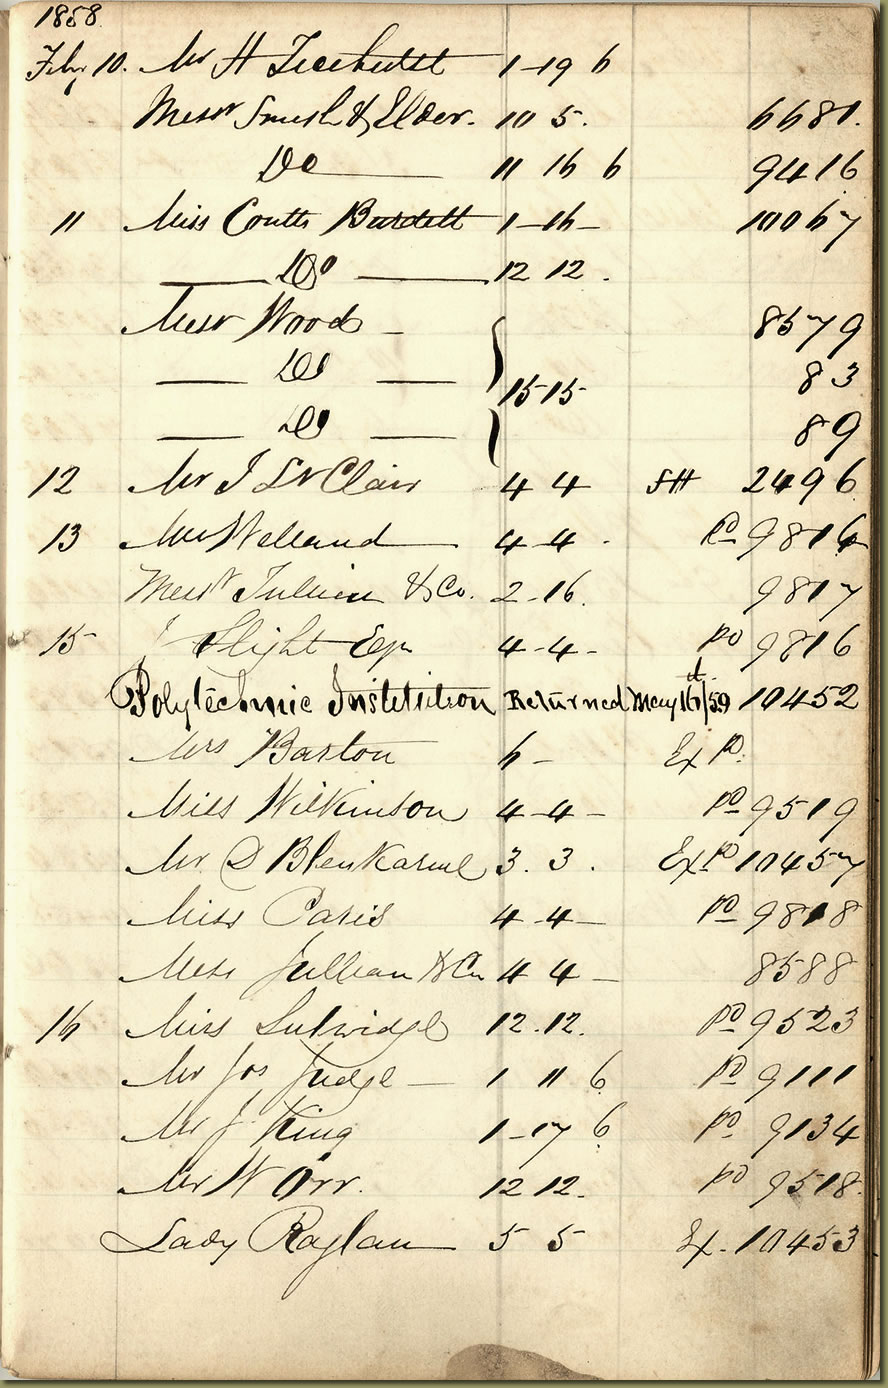 1858.
Feby 10. Mr H Ticehurst 1-19 6
Messrs Smith & Elder. 10 5. 6681.
Do 11 16 6 9416
11 Miss Coutts Burdett 1-16- 10067
Do 12 12.
Messrs Wood - 8579
Do 15 15 83
Do 89
12 Mr J St Clair 4 4 SH 2496
13 Mr Welland 4-4 - Pd 9816
Messrs Jullien & Co. 2-16. 9817
15 J Slight Esqr 4-4- Pd 9816
Polytechnic Institution Returned May 16th/59 10452
Mrs Barton 6- Ex Pd.
Miss Wilkinson 4-4- Pd 9519
Mr D Blenkarne 3. 3. Ex Pd 10457
Miss Paris 4-4- Pd 9818
Mess Jullian & Co 4 4- 8588
16 Miss Lutwidge 12.12. Pd 9523
Mr Jos Judge 1 11 6 Pd 9111
Mr J King 1-17 6 Pd 9134
Mr W Orr. 12 12. Pd 9518.
Lady Raglan 5 5 Ex. 10453